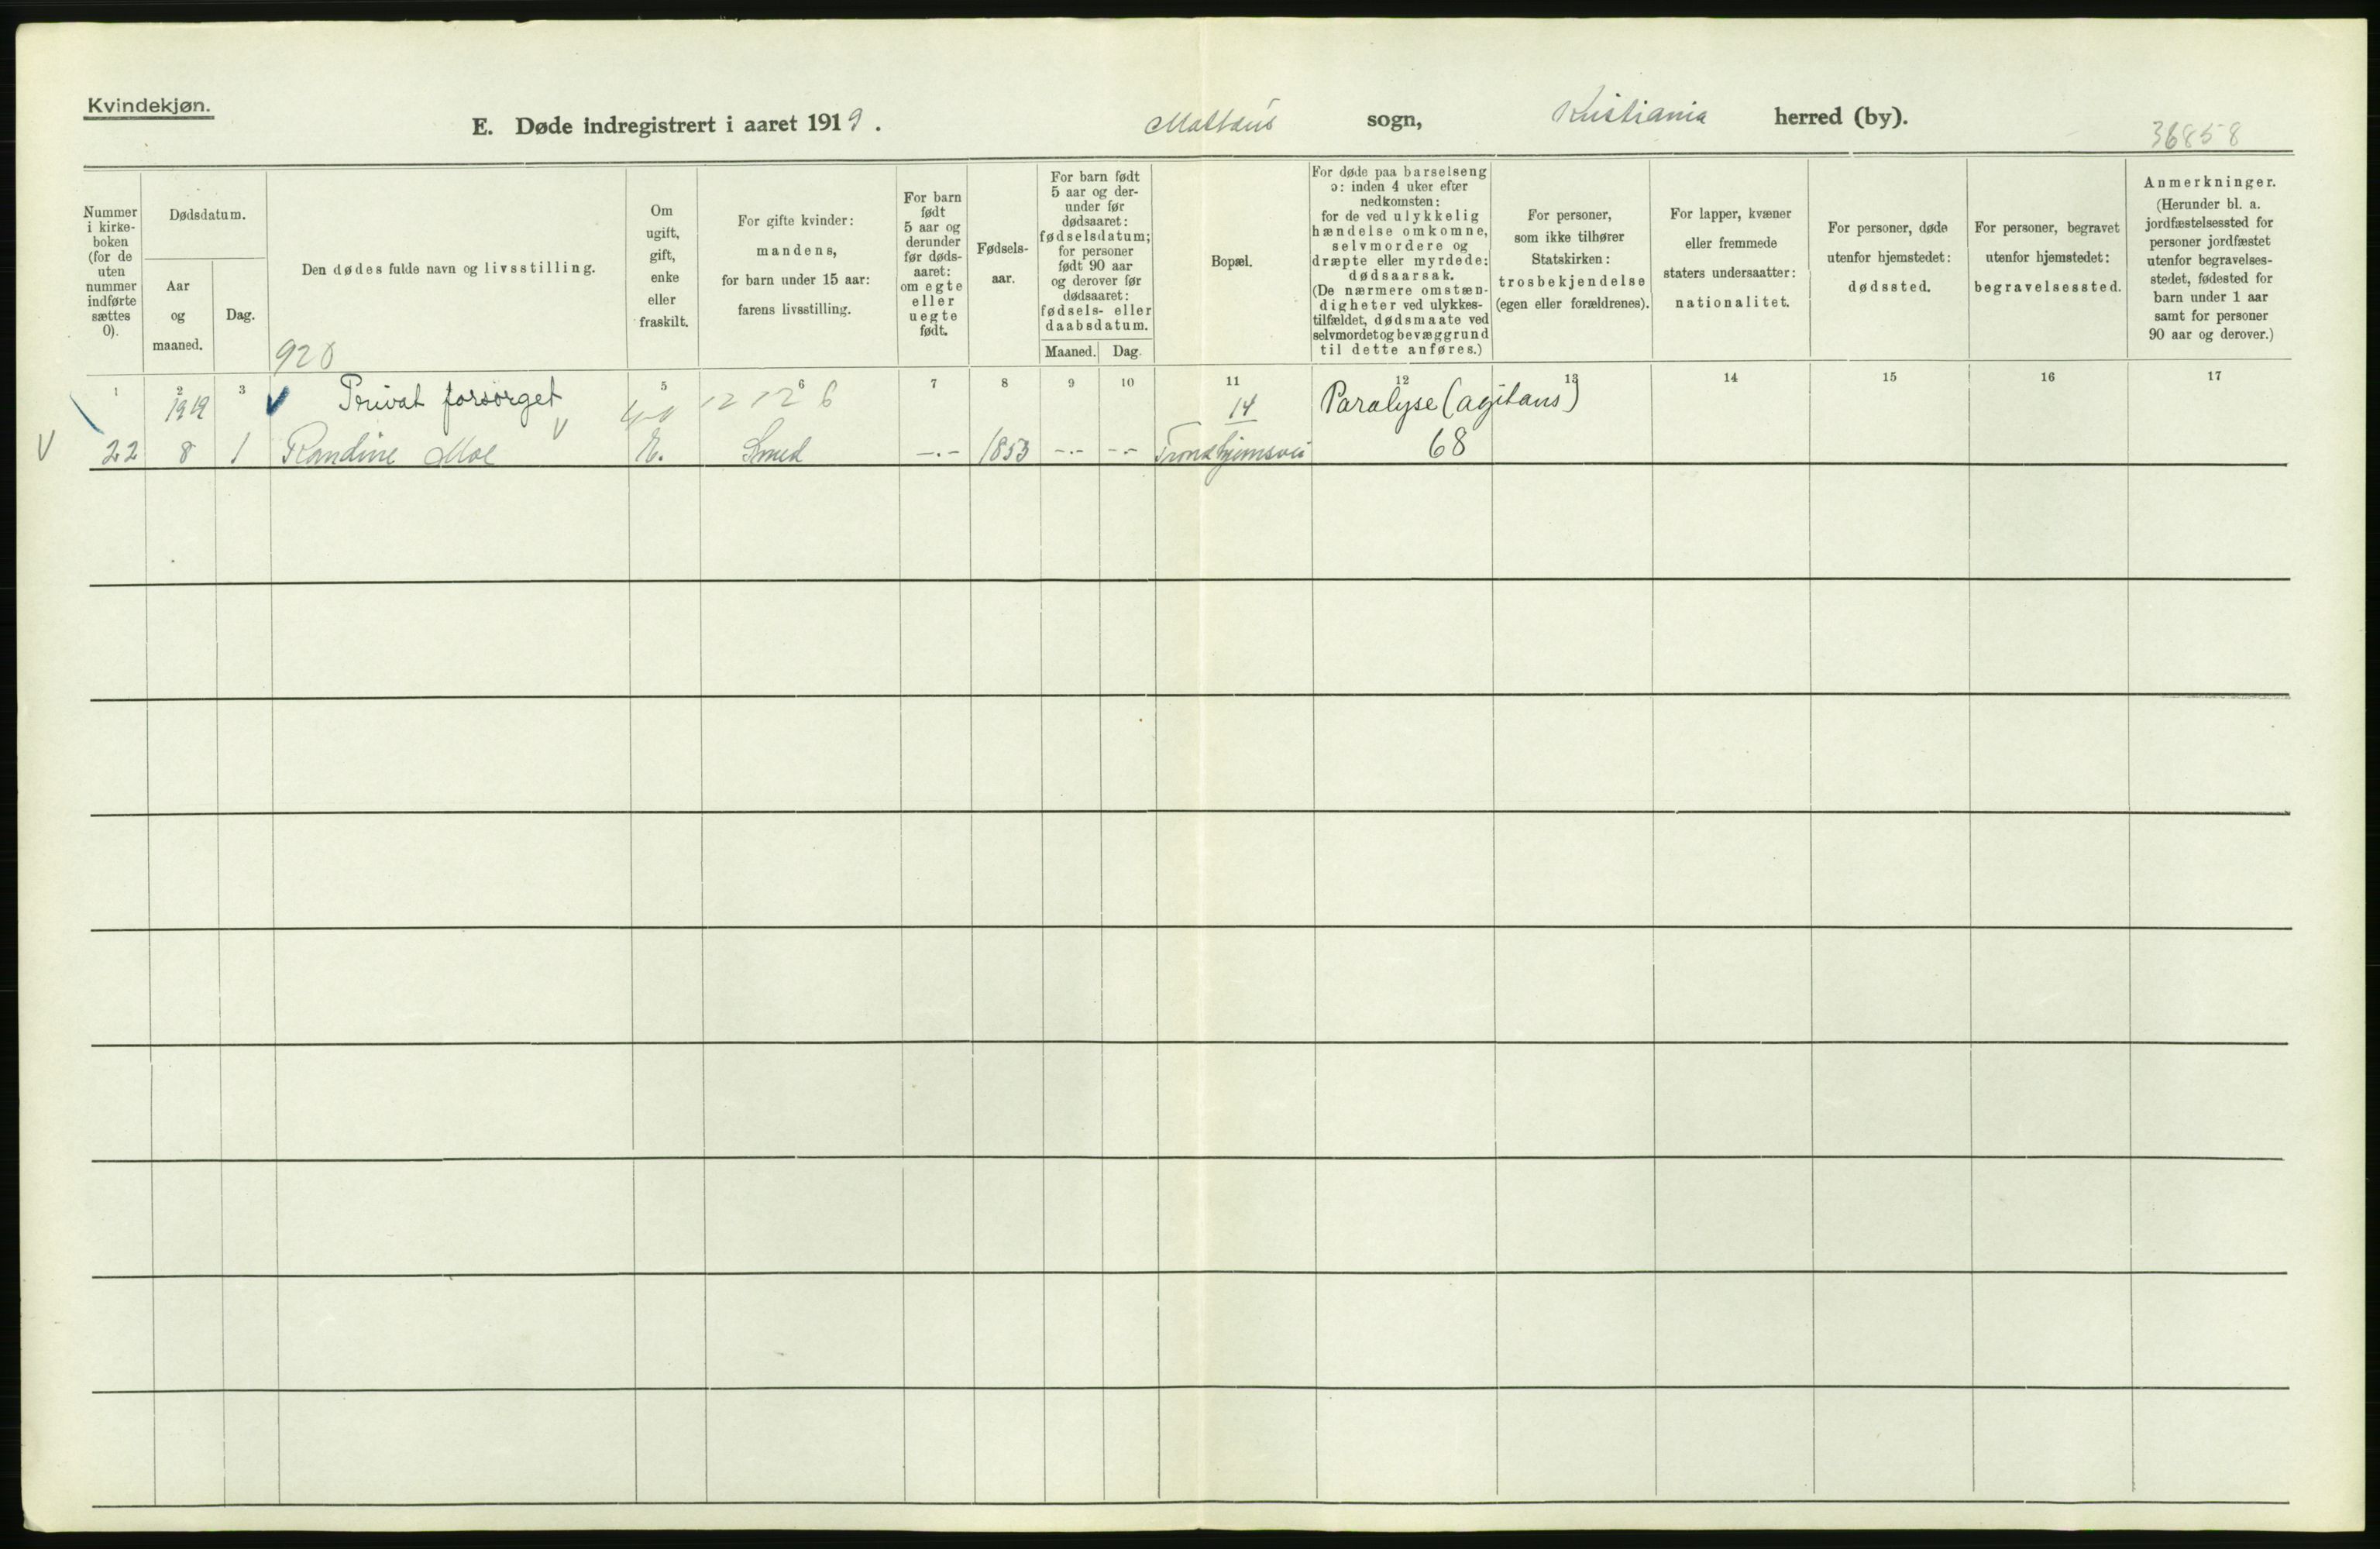 Kvindekjøn.
E. Døde indregistrert i aaret 1919. Mattæus sogn, Kristiania herred (by).
36858
Nummer i kirke-boken (for de uten nummer indførte sættes 0).
Dødsdatum.
Aar og maaned.
Dag.
Den dødes fulde navn og livsstilling.
920
Om ugift, gift, enke eller fraskilt.
For gifte kvinder: mandens, for barn under 15 aar: farens livsstilling.
For barn født 5 aar og derunder før døds-aaret: om egte eller uegte født.
Fødsels-aar.
For barn født 5 aar og der-under før dødsaaret: fødselsdatum; for personer født 90 aar og derover før dødsaaret: fødsels- eller daabsdatum.
Maaned. Dag.
Bopæl.
For døde paa barselseng ɔ: inden 4 uker efter nedkomsten: for de ved ulykkelig hændelse omkomne, selvmordere og dræpte eller myrdede: dødsaarsak. (De nærmere omstæn-digheter ved ulykkes-tilfældet, dødsmaate ved selvmordet og bevæggrund til dette anføres.)
For personer, som ikke tilhører Statskirken: trosbekjendelse (egen eller forældrenes).
For lapper, kvæner eller fremmede staters undersaatter: nationalitet.
For personer, døde utenfor hjemstedet: dødssted.
For personer, begravet utenfor hjemstedet: begravelsessted.
Anmerkninger. (Herunder bl. a. jordfæstelsessted for personer jordfæstet utenfor begravelses-stedet, fødested for barn under 1 aar samt for personer 90 aar og derover.)
1 2 3 5 6 7 8 9 10 11 12 13 14 15 16 17
1919 Privat forsørget 12 12 6 14 Paralyse (agitans)
22 8 1 Randine Moe E. Smed -.- 1853 -.- -.- Trondhjemsvei 68